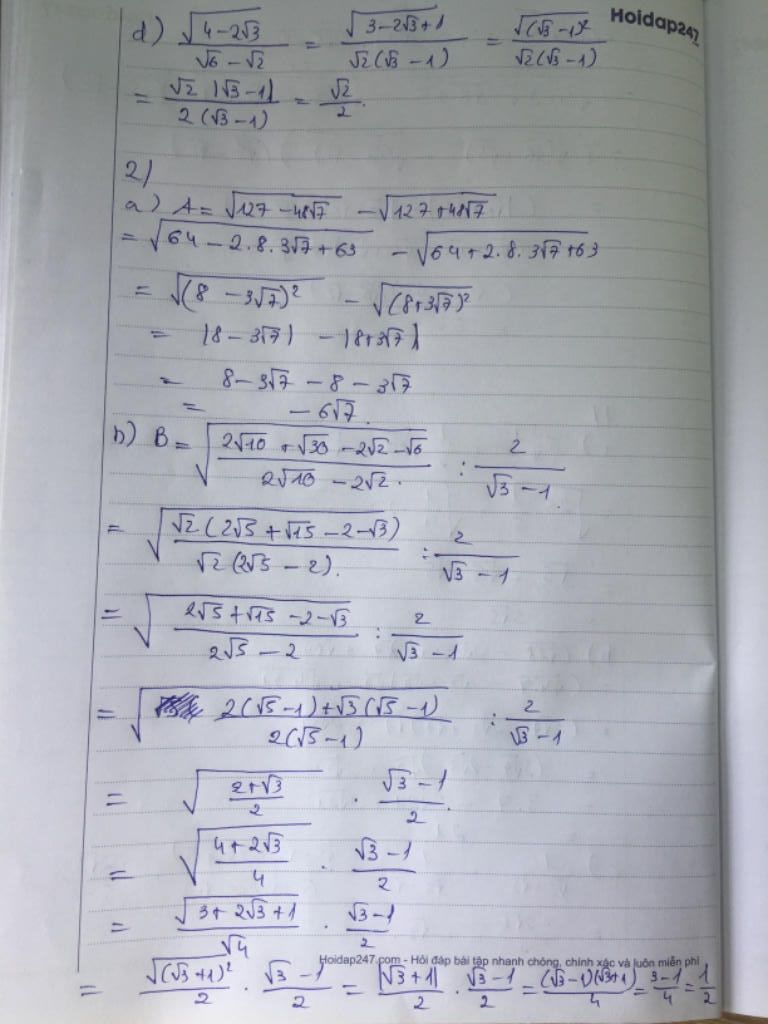 Hoidap247
d) √(4-2√3)/(√6-√2) = √(3-2√3+1)/(√2(√3-1)) = √((√3-1)²)/(√2(√3-1))
= √2|√3-1|/(2(√3-1)) = √2/2.
2)
a) A = √(127-48√7) - √(127+48√7)
= √(64-2.8.3√7+63) - √(64+2.8.3√7+63)
= √((8-3√7)²) - √((8+3√7)²)
= |8-3√7| - |8+3√7|
= 8-3√7-8-3√7
= -6√7.
b) B = √((2√10+√30-2√2-√6)/(2√10-2√2)) : 2/(√3-1)
= √(√2(2√5+√15-2-√3)/(√2(2√5-2))) : 2/(√3-1)
= √((2√5+√15-2-√3)/(2√5-2)) : 2/(√3-1)
= √((2(√5-1)+√3(√5-1))/(2(√5-1))) : 2/(√3-1)
= √((2+√3)/2) . (√3-1)/2.
= √((4+2√3)/4) . (√3-1)/2
= √(3+2√3+1)/√4 . (√3-1)/2
Hoidap247.com - Hỏi đáp bài tập nhanh chóng, chính xác và luôn miễn phí
= √((√3+1)²)/2 . (√3-1)/2 = |√3+1|/2 . (√3-1)/2 = (√3-1)(√3+1)/4 = (3-1)/4 = 1/2